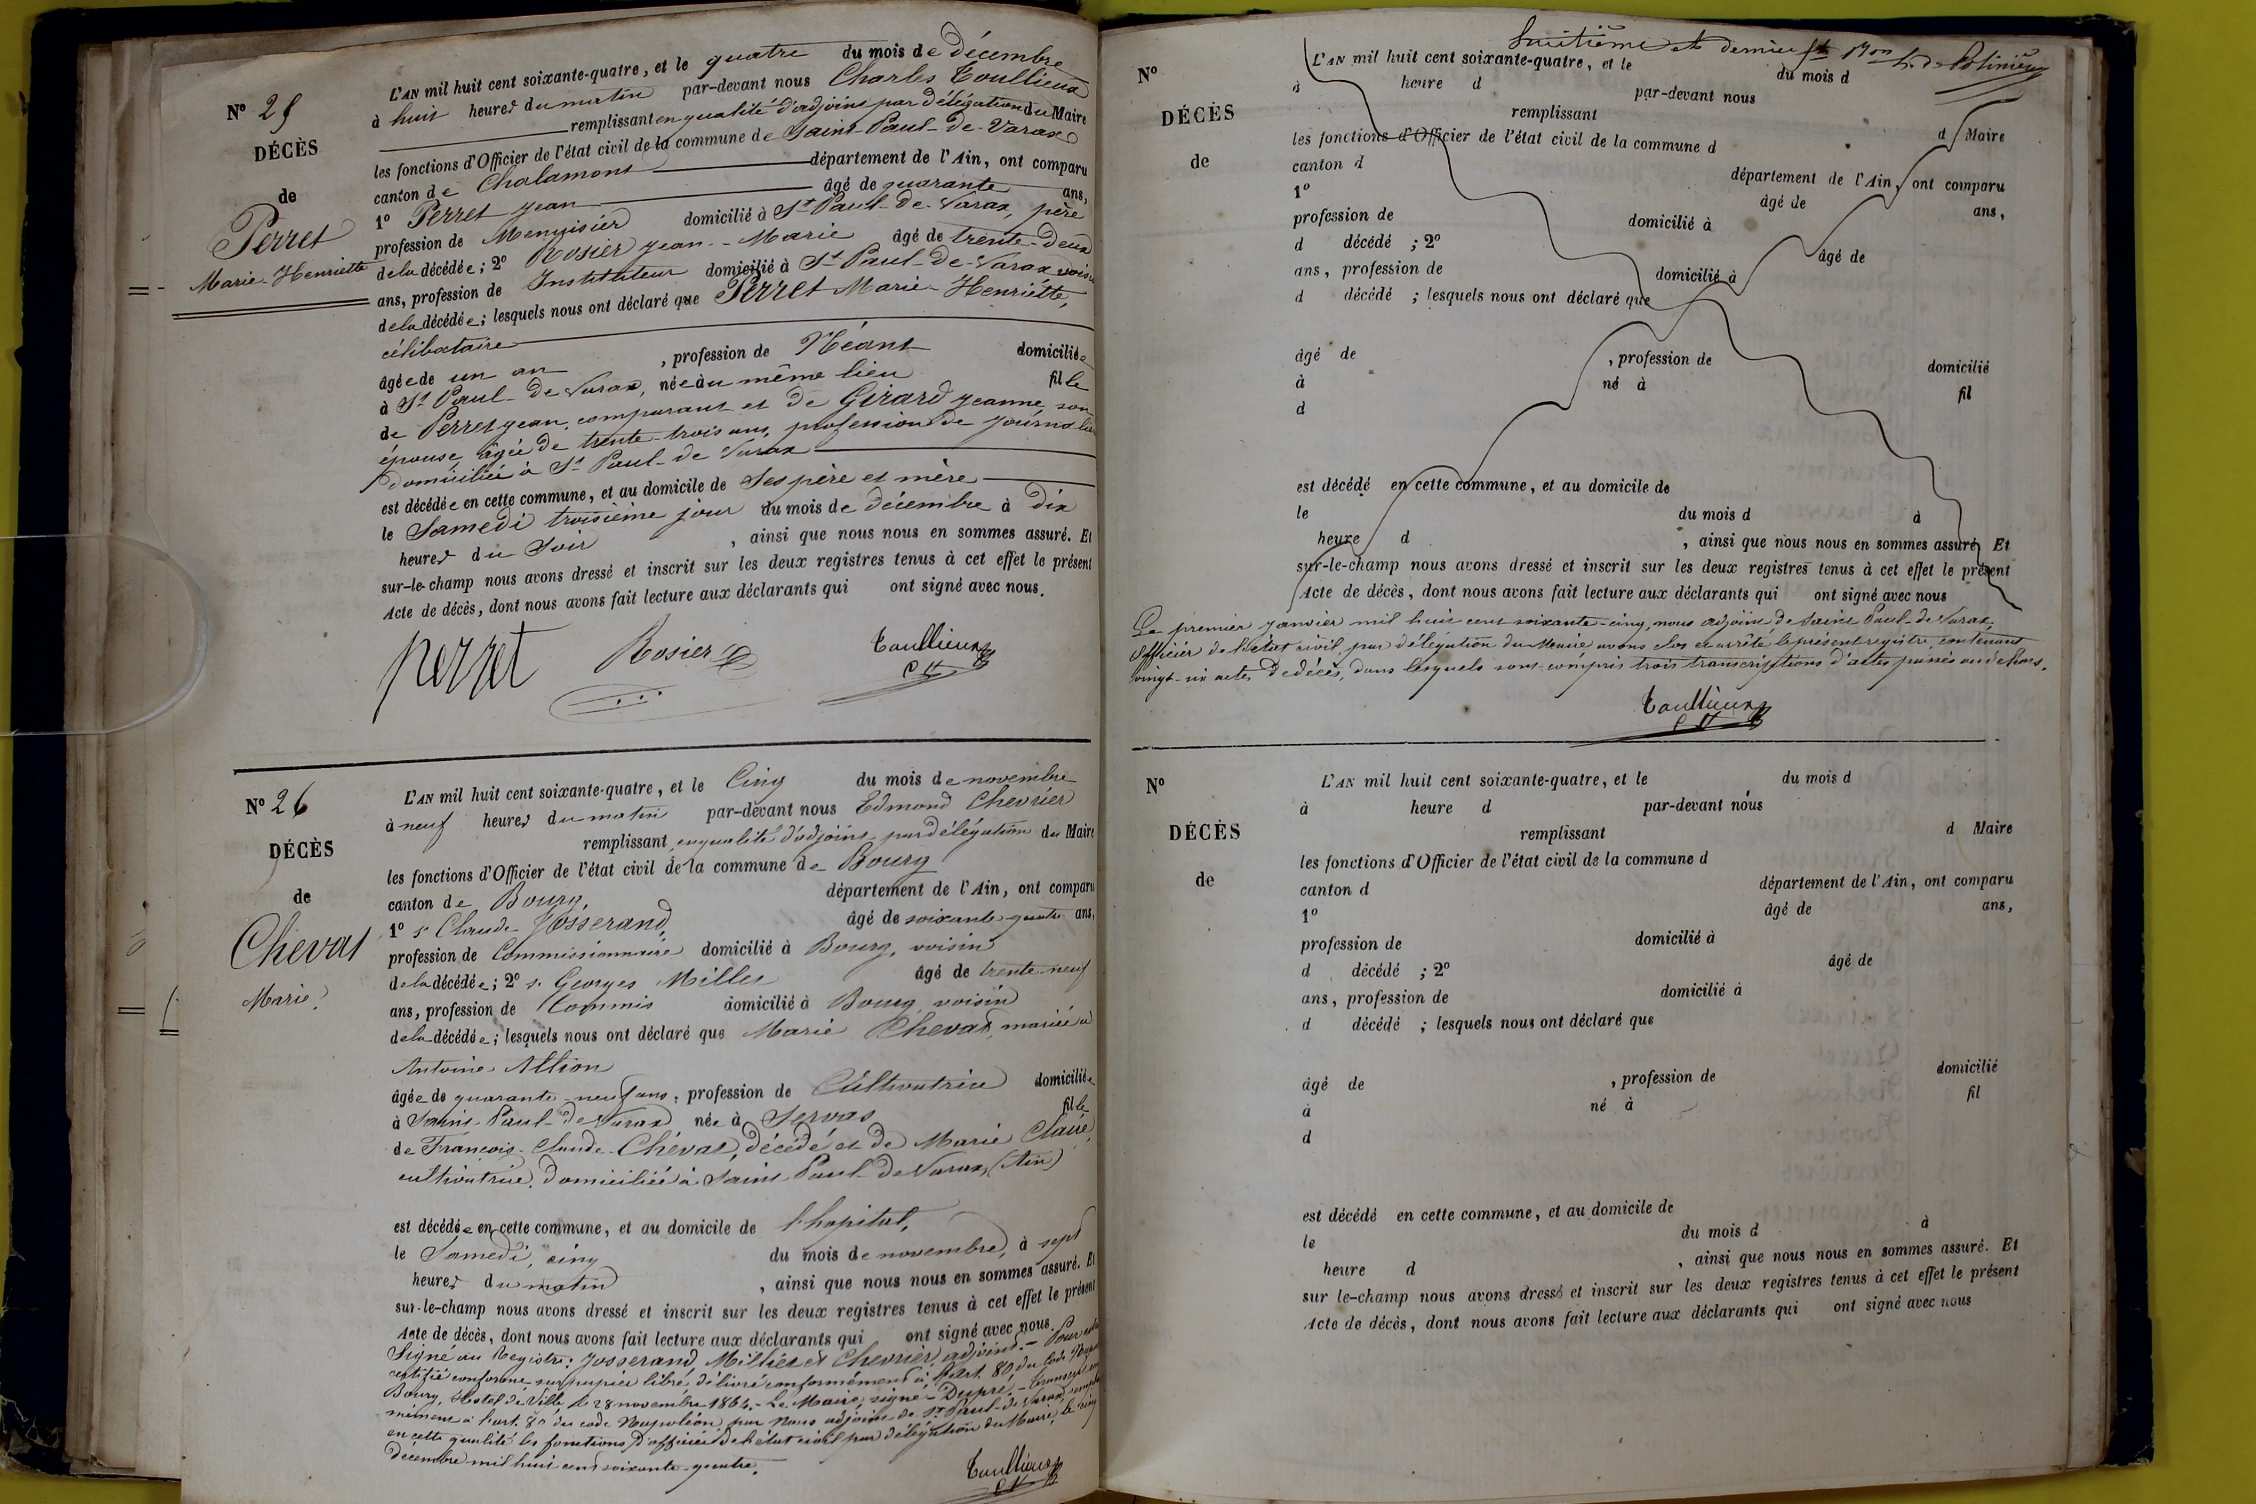 N° 25
DÉCÈS
de
Perret
Marie-Henriette
L'AN mil huit cent soixante-quatre, et le quatre du mois de décembre
à huit heures du matin par-devant nous Charles Toullieux
remplissant en qualité d'adjoint par délégation du Maire
les fonctions d'Officier de l'état civil de la commune de Saint-Paul-de-Varax
canton de Chalamont département de l'Ain, ont comparu
1° Perret Jean âgé de quarante ans,
profession de Menuisier domicilié à St Paul-de-Varax, père
de la décédée; 2° Rosier Jean-Marie âgé de trente-deux
ans, profession de Instituteur domicilié à St Paul-de-Varax voisin
de la décédée; lesquels nous ont déclaré que Perret Marie-Henriette,
célibataire
âgée de un an , profession de Néant domiciliée
à St Paul-de-Varax, née au même lieu fille
de Perret Jean, comparant et de Girard Jeanne, son
épouse, âgée de trente-trois ans, profession de journalière
domiciliée à St Paul-de-Varax
est décédée en cette commune, et au domicile de ses père et mère
le Samedi troisième jour du mois de décembre à dix
heures du soir , ainsi que nous nous en sommes assuré. Et
sur-le-champ nous avons dressé et inscrit sur les deux registres tenus à cet effet le présent
Acte de décès, dont nous avons fait lecture aux déclarants qui ont signé avec nous.
perret Rosier Toullieux
N° 26
DÉCÈS
de
Chevat
Marie
L'AN mil huit cent soixante-quatre, et le Cinq du mois de novembre
à neuf heures du matin par-devant nous Edmond Chevrier
remplissant en qualité d'adjoint par délégation du Maire
les fonctions d'Officier de l'état civil de la commune de Bourg
canton de Bourg, département de l'Ain, ont comparu
1° s. Claude Josserand, âgé de soixante-quatre ans,
profession de Commissionnaire domicilié à Bourg, voisin
de la décédée; 2° s. Georges Millet âgé de trente-neuf
ans, profession de Commis domicilié à Bourg, voisin
de la décédée; lesquels nous ont déclaré que Marie Chevat, mariée à
Antoine Allion
âgée de quarante-neuf ans, profession de Cultivatrice domiciliée
à Saint-Paul-de-Varax, née à Servas fille
de François-Claude Chevat, décédé et de Marie Claire,
cultivatrice, domiciliée à Saint Paul de Varax (Ain)
est décédée en cette commune, et au domicile de l'hopital,
le Samedi, cinq du mois de novembre, à sept
heures du matin , ainsi que nous nous en sommes assuré. Et
sur-le-champ nous avons dressé et inscrit sur les deux registres tenus à cet effet le présent
Acte de décès, dont nous avons fait lecture aux déclarants qui ont signé avec nous.
Signé au Registre: Josserand, Millet et Chevrier, adjoint. — Pour extrait
certifié conforme sur papier libre, délivré conformément à l'art. 80 du Code Napoléon
Bourg, Hotel de Ville, le 28 novembre 1864. — Le Maire, signé Dupré. — Transcrit
à l'art. 80 du code Napoléon, par Nous adjoint de St Paul-de-Varax,
en cette qualité les fonctions d'officier de l'état civil par délégation du Maire, le cinq
décembre mil huit cent soixante-quatre.
Toullieux
huitième et dernier
N°
DÉCÈS
de
L'AN mil huit cent soixante-quatre, et le du mois d
à heure d par-devant nous
remplissant d Maire
les fonctions d'Officier de l'état civil de la commune d
canton d département de l'Ain, ont comparu
1° âgé de ans,
profession de domicilié à
d décédé ; 2° âgé de
ans, profession de domicilié à
d décédé ; lesquels nous ont déclaré que
âgé de , profession de domicilié
à né à fil
d
est décédé en cette commune, et au domicile de
le du mois d à
heure d , ainsi que nous nous en sommes assuré. Et
sur-le-champ nous avons dressé et inscrit sur les deux registres tenus à cet effet le présent
Acte de décès, dont nous avons fait lecture aux déclarants qui ont signé avec nous
Le premier janvier mil huit cent soixante-cinq, nous adjoint de Saint Paul-de-Varax,
Officier de l'état civil, par délégation du Maire avons clos et arrêté le présent registre, contenant
vingt-six actes de décès, dans lesquels sont compris trois transcriptions d'actes passés au dehors.
Toullieux
N°
DÉCÈS
de
L'AN mil huit cent soixante-quatre, et le du mois d
à heure d par-devant nous
remplissant d Maire
les fonctions d'Officier de l'état civil de la commune d
canton d département de l'Ain, ont comparu
1° âgé de ans,
profession de domicilié à
d décédé ; 2° âgé de
ans, profession de domicilié à
d décédé ; lesquels nous ont déclaré que
âgé de , profession de domicilié
à né à fil
d
est décédé en cette commune, et au domicile de
le du mois d à
heure d , ainsi que nous nous en sommes assuré. Et
sur le-champ nous avons dressé et inscrit sur les deux registres tenus à cet effet le présent
Acte de décès, dont nous avons fait lecture aux déclarants qui ont signé avec nous